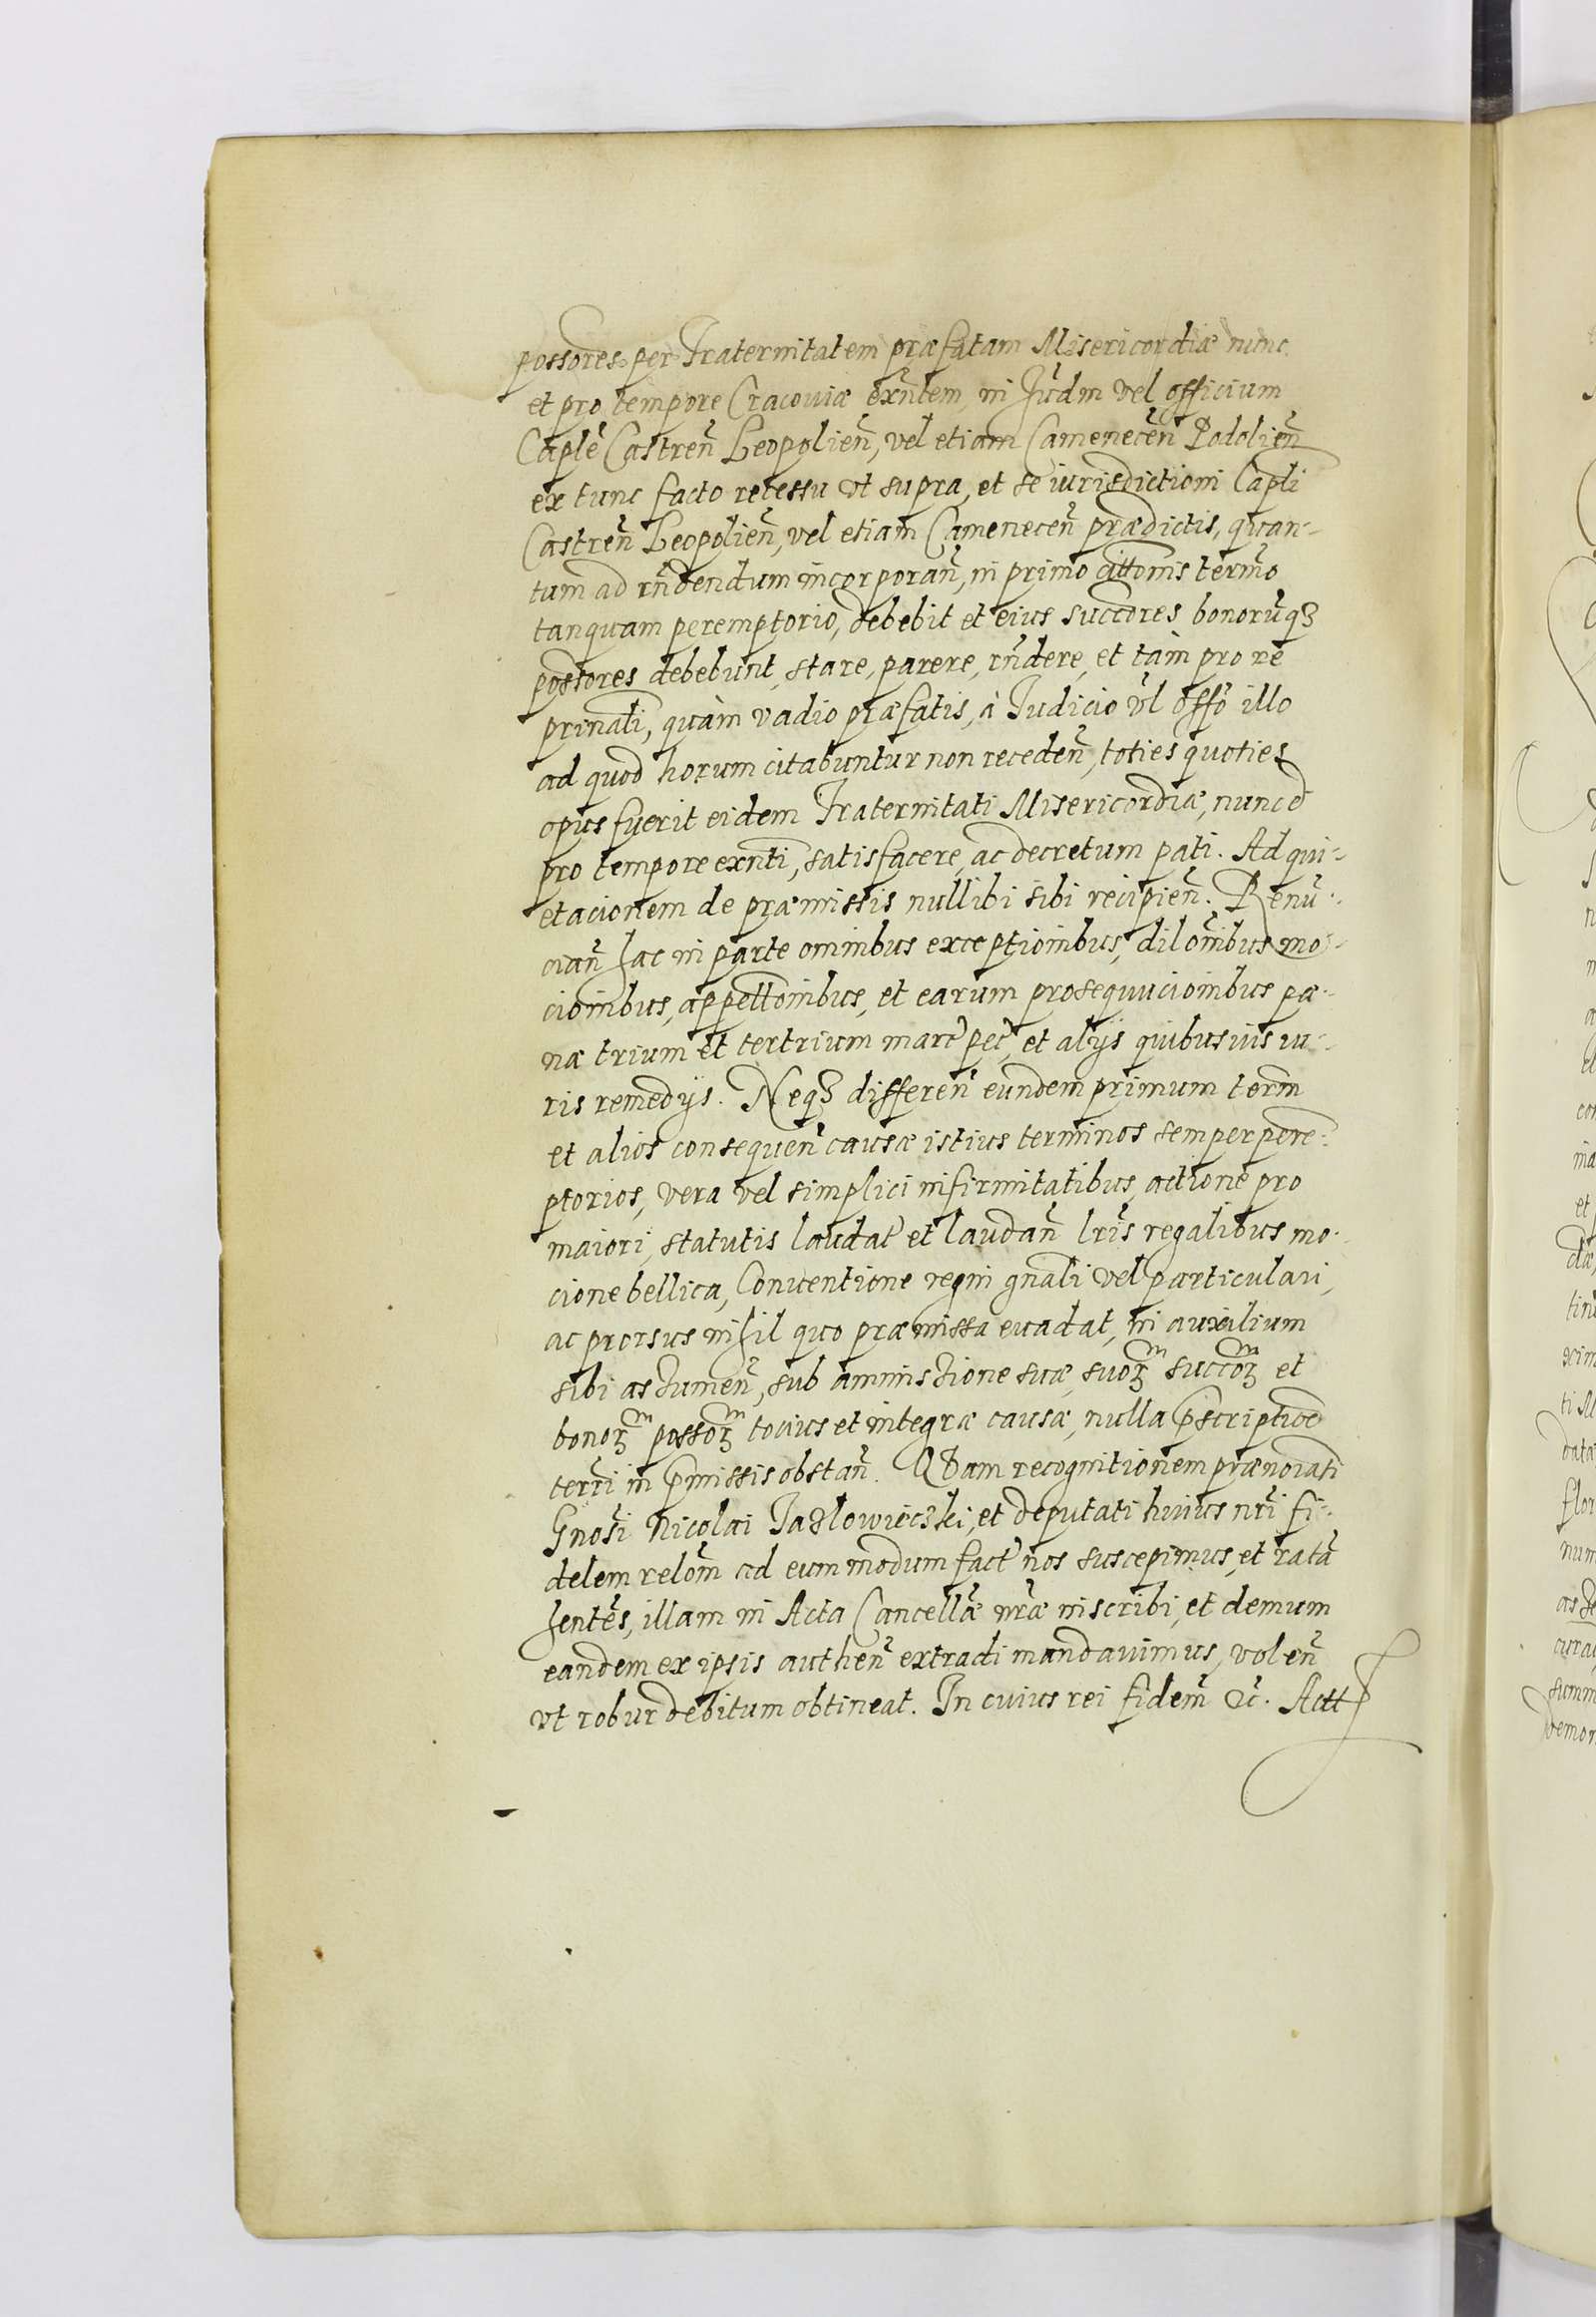 possores per Fraternitatem præfatam Misericordiæ nunc
et pro tempore Cracouiæ exñtem, in Judm vel officium
Caplê Castreñ Leopolieñ, vel etiam Cameneceñ Podolieñ
ex tunc facto recessu vt supra, et se iurisdictioni Capli
Castreñ Leopolieñ, vel etiam Cameneceñ prædictis, quan-
tum ad rñdendum incorporañ, in primo cittonis term̃o
tanquam peremptorio, debebit et eius succores bonorũqз
possores debebunt, stare, parere, rñdere, et tàm pro re
prinali, quàm vadio præfatis, à Judicio vl̃ offõ illo
ad quod horum citabuntur non recedeñ, toties quoties
opus fuerit eidem Fraternitati Misericordiæ, nunc et
pro tempore exnti, satisfacere, ac decretum pati. Ad qui-
etacionem de præmissis nullibi sibi recipieñ. Renũ-
ciañ hac in parte omnibus exceptionibus, dilõnibus mo-
cionibus, appellonibus, et earum prosequucionibus pæ-
næ trium et tertrium marc pec, et alijs quibusuis iu-
ris remedijs. Neqз differeñ eundem primum term̃
et alios consequeñ causæ istius terminos semper pere-
ptorios, vera vel simplici infirmitatibus, actione pro
maiori, statutis laudat et laudañ lr̃is regalibus mo-
cione bellica, Conuentione regni gnali vel particulari,
ac prorsus nihil quo præmissa euadat, in auxilium
sibi assumeñ, sub ammissione suæ, suoꝝ succoꝝ et
bonoꝝ possoꝝ tocius et integræ causæ, nulla p̃scriptione
terrj in p̃missis obstañ. Qvam recognitionem prænoiati
Gnosi Nicolai Jazlowiecзki, et deputati huius nr̃i fi-
delem relom̃ ad eum modum fact nos suscepimus, et ratã
hentes, illam in Acta Cancellæ nr̃æ inscribi, et demum
eandem ex ipsis autheñ extradi mandauimus, voleñ
vt robur debitum obtineat. In cuius rei fidem &c. Actt